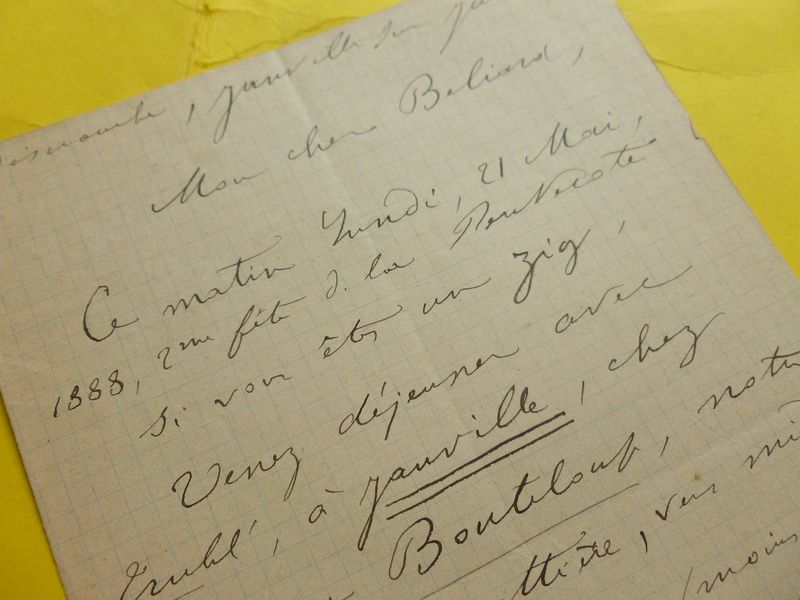 , Janville sur
Mon cher Beliard,
Ce matin Lundi, 21 Mai,
1888, 2me fête d. la Pentecote
si vous êtes un zig,
Venez déjeuner avec
Trublé, à Janville, chez
Bouteloup, notre
vers
moins